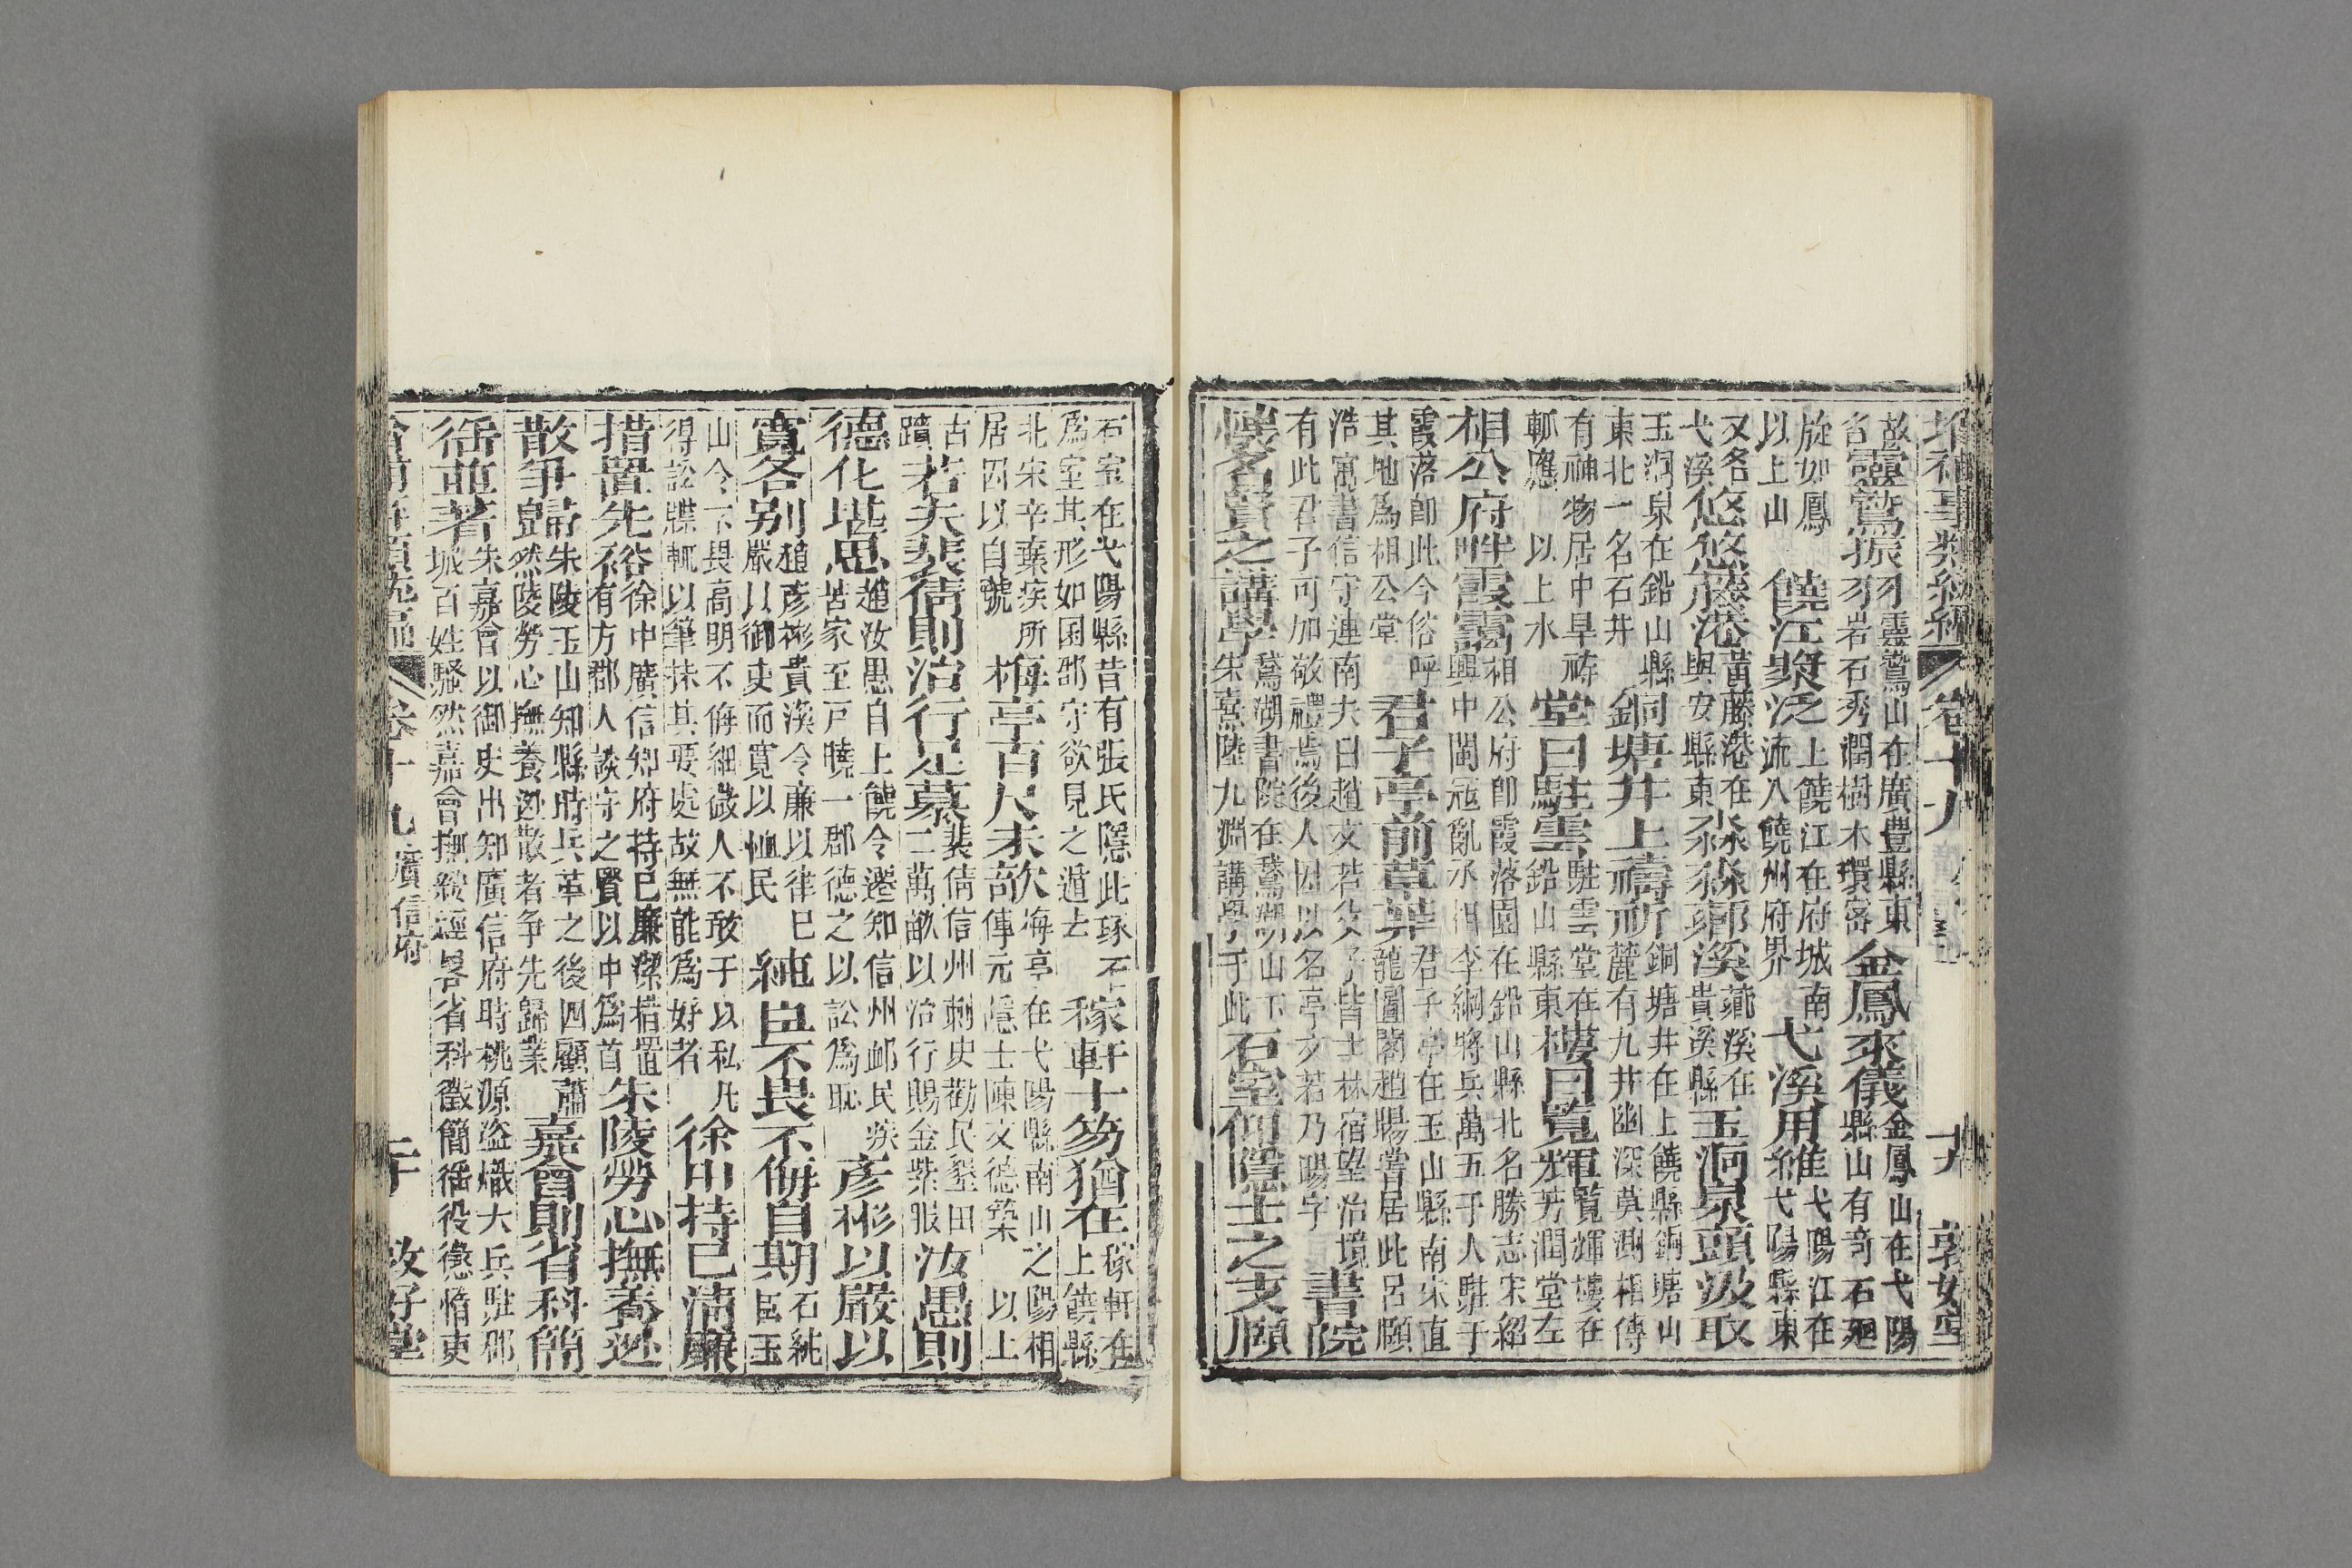 増補事類統編 卷十九 十九 敦好堂
故名靈鷲振羽靈鷲山在廣豊縣東岩石秀潤樹木環密金鳳來儀金鳳山在弋陽縣山有奇石廻
旋如鳳以上山饒江衆泛上饒江在府城南流入饒州府界弋溪用維弋陽江在弋陽縣東
又名弋溪悠悠藤港黃藤港在興安縣東淼淼薌溪薌溪在貴溪縣玉洞泉頭汲取
玉洞泉在鉛山縣東北一名石井銅塘井上禱祈銅塘井在上饒縣銅塘山麓有九井幽深莫測相傳
有神物居中旱禱輒應以上水堂曰駐雲駐雲堂在鉛山縣東樓曰覽輝覽輝樓在芳潤堂左
相公府畔霞靄相公府卽霞落園在鉛山縣北名勝志宋紹興中閩寇亂丞相李綱將兵萬五千人駐于
霞落卽此今俗呼其地爲相公堂君子亭前君子亭在玉山縣南宋直龍圖閣趙暘嘗居此呂願
浩寓書信守連南夫曰趙文若父子皆士林宿望治境有此君子可加敬禮焉後人因以名亭文若乃暘字書院
懷名賢之講學鵞湖書院在鵞湖山下朱熹陸九淵講學于此石室仰隱士之支頤
石室在弋陽縣昔有張氏隱此琢石爲室其形如囷郡守欲見之遁去稼軒十笏猶在稼軒在上饒縣
北宋辛棄疾所居因以自號梅亭百尺未欹梅亭在弋陽縣南山之陽相傳元隱士陳文德築以上
古蹟若夫裴倩則治行足慕裴倩信州刺史勸民墾田二萬畝以治行賜金紫服汝愚則
德化堪思趙汝愚自上饒令遷知信州邺民疾苦家至戸曉一郡德之以訟爲恥彥彬以嚴以
寬各别彥彬貴溪令廉以律巳嚴以御吏而寬以恤民純臣不畏不侮自期石純臣玉
山令下畏高明不侮細㣲人不敢于以私凡得訟牒輒以筆抹其要處故無能爲奸者徐中持已淸廉
措置先裕徐中廣信知府持已廉潔措置有方郡人談守之賢以中爲首朱陵勞心撫養逃
散爭歸朱陵玉山知縣時兵革之後四顧蕭然陵勞心撫養逃散者争先歸業嘉會則省科簡
徭並著朱嘉會以御史出知廣信府時桃源盜熾大兵駐郡城百姓騷然嘉會撫綏經畧省科徵簡徭役懲惰吏
增補事類統編 卷十九 廣信府 二十 敦好堂